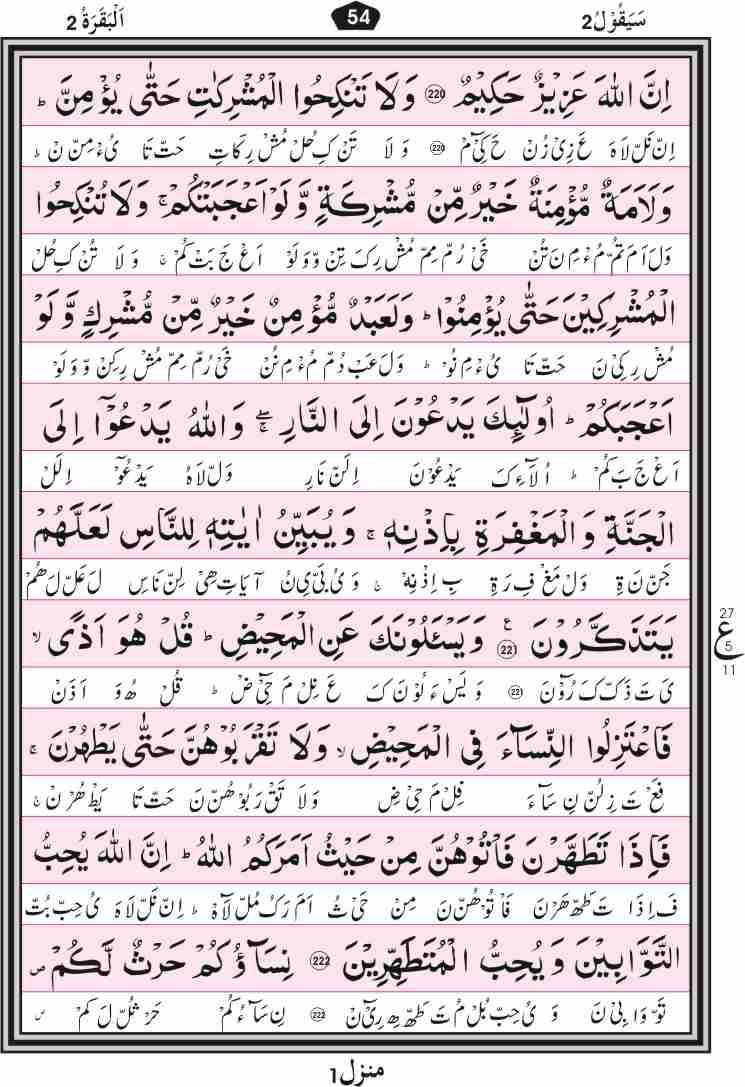 سَيَقُوْلُ2 54 اَلْبَقَرَةُ 2
اِنَّ اللّٰهَ عَزِيْزٌ حَكِيْمٌ ﴿220﴾ وَلَا تَنْكِحُوا الْمُشْرِكٰتِ حَتّٰى يُؤْمِنَّ ؕ
اِنّ نَلّ لَاهَ عَ زِىْ زُنْ حَ كِىْٓ مْ ﴿220﴾ وَ لَا تَنْ كِ حُلْ مُشْ رِ كَاتِ حَتْ تَا ىُءْ مِنّ نْ ؕ
وَلَاَمَةٌ مُّؤْمِنَةٌ خَيْرٌ مِّنْ مُّشْرِكَةٍ وَّلَوْ اَعْجَبَتْكُمْ ۚ وَلَا تُنْكِحُوا
وَلَ اَ مَ تُمّ مُءْ مِ نَ تُنْ خَىْ رُمّ مِمّ مُشْ رِكَ تِنْ وّ وَلَوْ اَعْ جَ بَتْ كُمْ ۚ وَ لَا تُنْ كِ حُلْ
الْمُشْرِكِيْنَ حَتّٰى يُؤْمِنُوْا ؕ وَلَعَبْدٌ مُّؤْمِنٌ خَيْرٌ مِّنْ مُّشْرِكٍ وَّلَوْ
مُشْ رِكِىْ نَ حَتْ تَا ىُءْ مِ نُوْ ؕ وَلَ عَبْ دُمّ مُءْ مِ نُنْ خَىْ رُمّ مِمّ مُشْ رِكِنْ وّ وَلَوْ
اَعْجَبَكُمْ ؕ اُولٰٓئِكَ يَدْعُوْنَ اِلَى النَّارِ ۖۚ وَاللّٰهُ يَدْعُوْٓا اِلَى
اَعْ جَ بَ كُمْ ؕ اُلَآءِ كَ يَدْ عُوْنَ اِلَنّ نَارِ وَلّ لَاهُ يَدْ عُوْٓ اِلَلْ
الْجَنَّةِ وَالْمَغْفِرَةِ بِاِذْنِهٖ ۚ وَيُبَيِّنُ اٰيٰتِهٖ لِلنَّاسِ لَعَلَّهُمْ
جَنّ نَ ةِ وَلْ مَغْ فِ رَ ةِ بِ اِذْ نِهٖ ۚ وَ ىُ بَىّ ىِ نُ آ يَاتِ هِىْ لِنّ نَاسِ لَ عَلّ لَ هُمْ
يَتَذَكَّرُوْنَ ﴿221﴾ ع وَيَسْـَٔلُوْنَكَ عَنِ الْمَحِيْضِ ؕ قُلْ هُوَ اَذًى ۙ
ىَ تَ ذَكّ كَ رُوْٓنَ ﴿221﴾ وَ يَسْ ءَ لُوْنَ كَ عَ نِلْ مَ حِىْٓ ضْ ؕ قُلْ هُوَ اَذَنْ
27 ع 5 11
فَاعْتَزِلُوا النِّسَآءَ فِى الْمَحِيْضِ ۙ وَلَا تَقْرَبُوْهُنَّ حَتّٰى يَطْهُرْنَ ۚ
فَعْ تَ زِلُنّ نِ سَآءَ فِلْ مَ حِىْ ضِ وَلَا تَقْ رَبُوْ هُنّ نَ حَتْ تَا يَطْ هُرْ نْ ۚ
فَاِذَا تَطَهَّرْنَ فَاْتُوْهُنَّ مِنْ حَيْثُ اَمَرَكُمُ اللّٰهُ ؕ اِنَّ اللّٰهَ يُحِبُّ
فَ اِذَا تَ طَهّ هَرْنَ فَاْ تُوْ هُنّ نَ مِنْ حَىْ ثُ اَمَ رَكُ مُلّ لَآهْ ؕ اِنّ نَلّ لَاهَ ىُ حِبّ بُتّ
التَّوَّابِيْنَ وَيُحِبُّ الْمُتَطَهِّرِيْنَ ﴿222﴾ نِسَآؤُكُمْ حَرْثٌ لَّكُمْ ص
تَوّ وَا بِىْ نَ وَ ىُ حِبّ بُلْ مُ تَ طَهّ هِ رِىْٓ نْ ﴿222﴾ نِ سَآ ءُ كُمْ حَرْ ثُلّ لَ كُمْ ص
منزل1